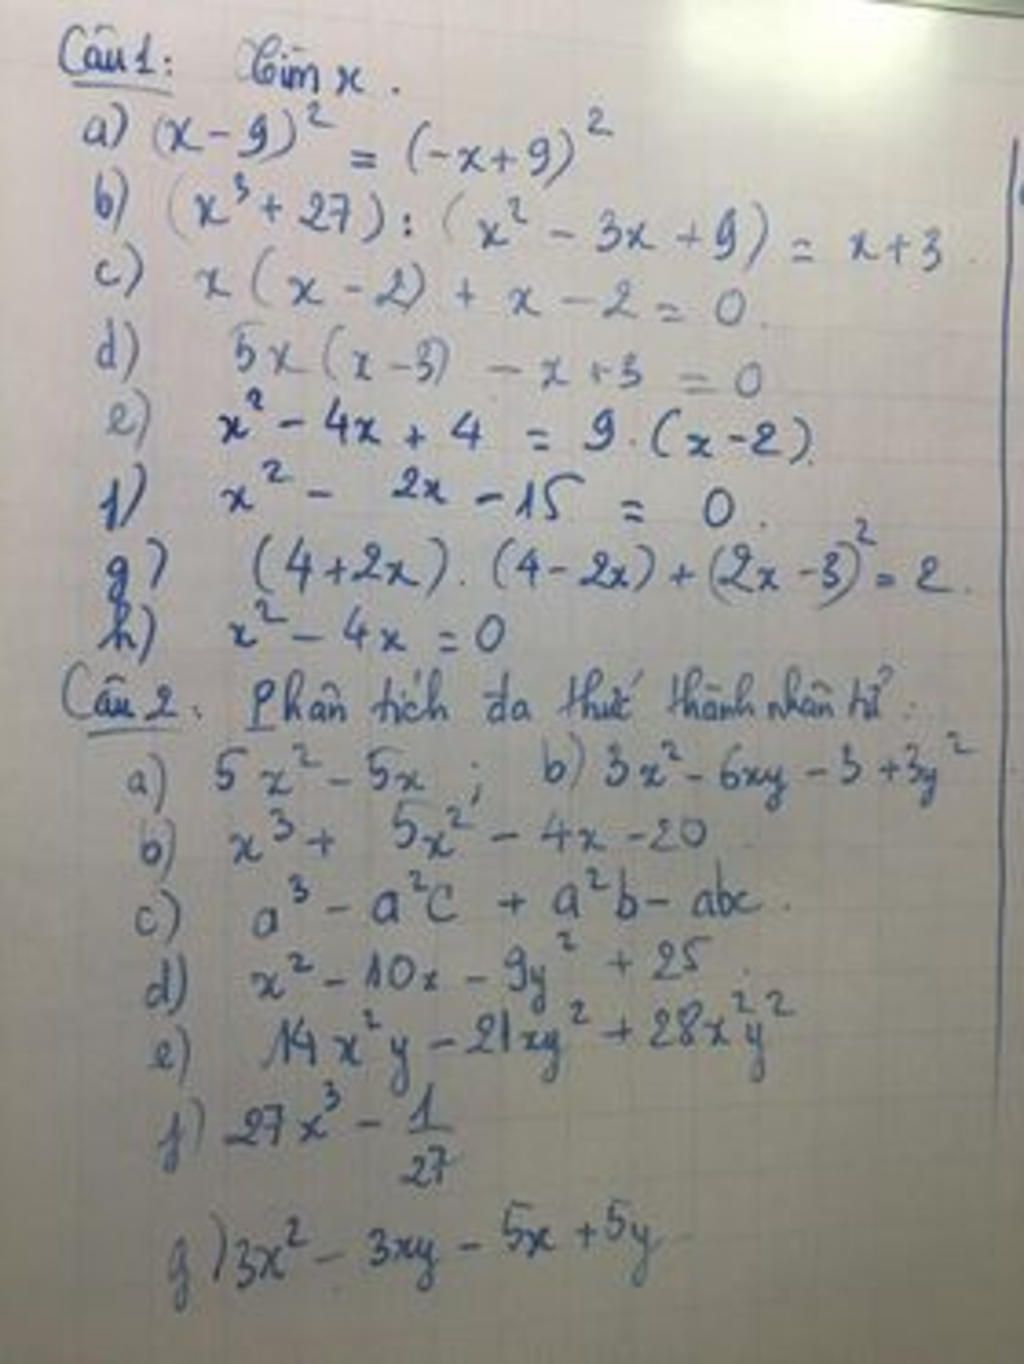 Câu 1: Tìm x.
a) (x - 9)² = (-x + 9)²
b) (x³ + 27) : (x² - 3x + 9) = x + 3
c) x(x - 2) + x - 2 = 0.
d) 5x(x - 3) - x + 3 = 0
e) x² - 4x + 4 = 9.(x - 2)
f) x² - 2x - 15 = 0.
g) (4 + 2x).(4 - 2x) + (2x - 3)² = 2.
h) x² - 4x = 0
Câu 2: Phân tích đa thức thành nhân tử:
a) 5x² - 5x ; b) 3x² - 6xy - 3 + 3y²
b) x³ + 5x² - 4x - 20
c) a³ - a²c + a²b - abc.
d) x² - 10x - 9y² + 25
e) 14x²y - 21xy² + 28x²y²
f) 27x³ - 1/27
g) 3x² - 3xy - 5x + 5y